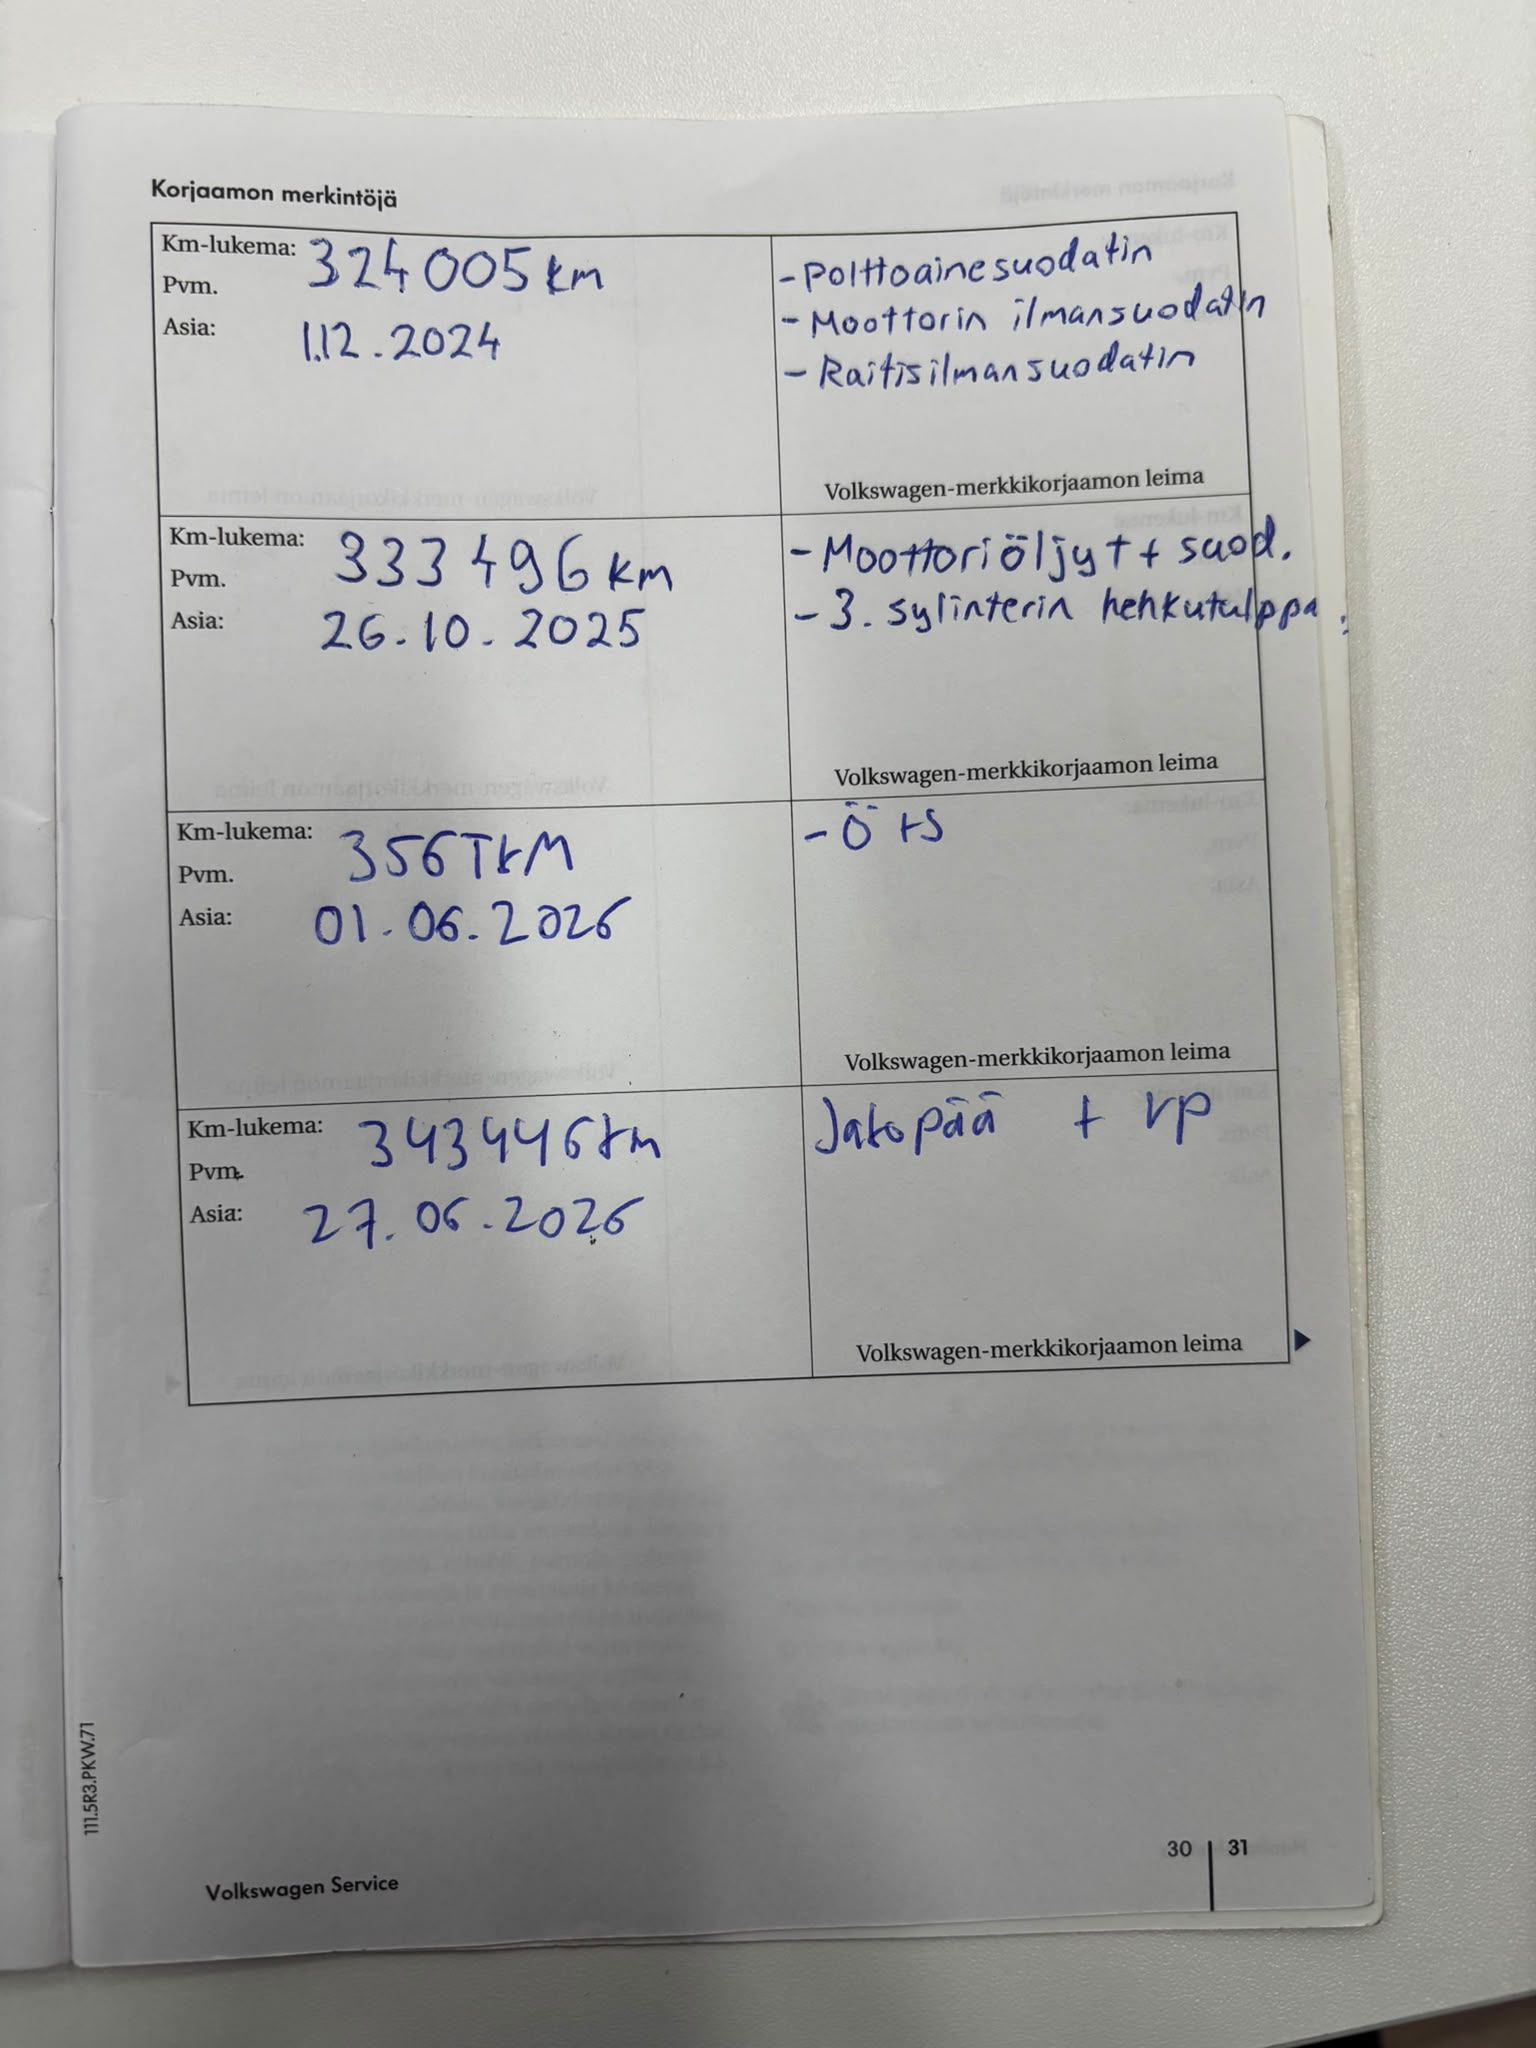 Korjaamon merkintöjä
Km-lukema: 324005 km
Pvm.
Asia: 1.12.2024
- Polttoainesuodatin
- Moottorin ilmansuodatin
- Raitisilmansuodatin
Volkswagen-merkkikorjaamon leima
Km-lukema: 333496 km
Pvm.
Asia: 26.10.2025
- Moottoriöljyt + suod.
- 3. sylinterin hehkutulppa
Volkswagen-merkkikorjaamon leima
Km-lukema: 356TkM
Pvm.
Asia: 01.06.2026
- Ö+S
Volkswagen-merkkikorjaamon leima
Km-lukema: 343446km
Pvm.
Asia: 27.06.2026
Jakopää + vp
Volkswagen-merkkikorjaamon leima
111.5R3.PKW.71
Volkswagen Service
30 | 31